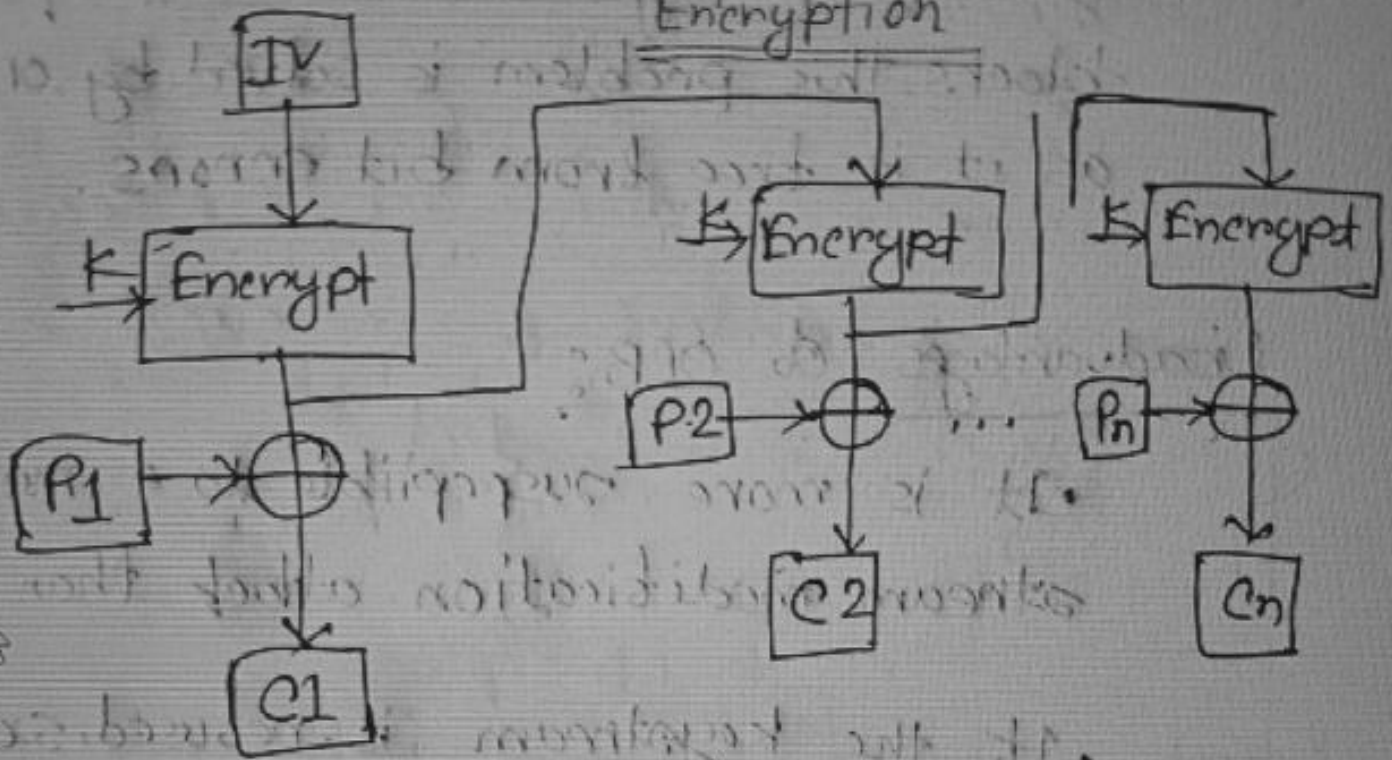 Encryption
IV
K Encrypt
K Encrypt
K Encrypt
P1
P2
...
Pn
C1
C2
Cn